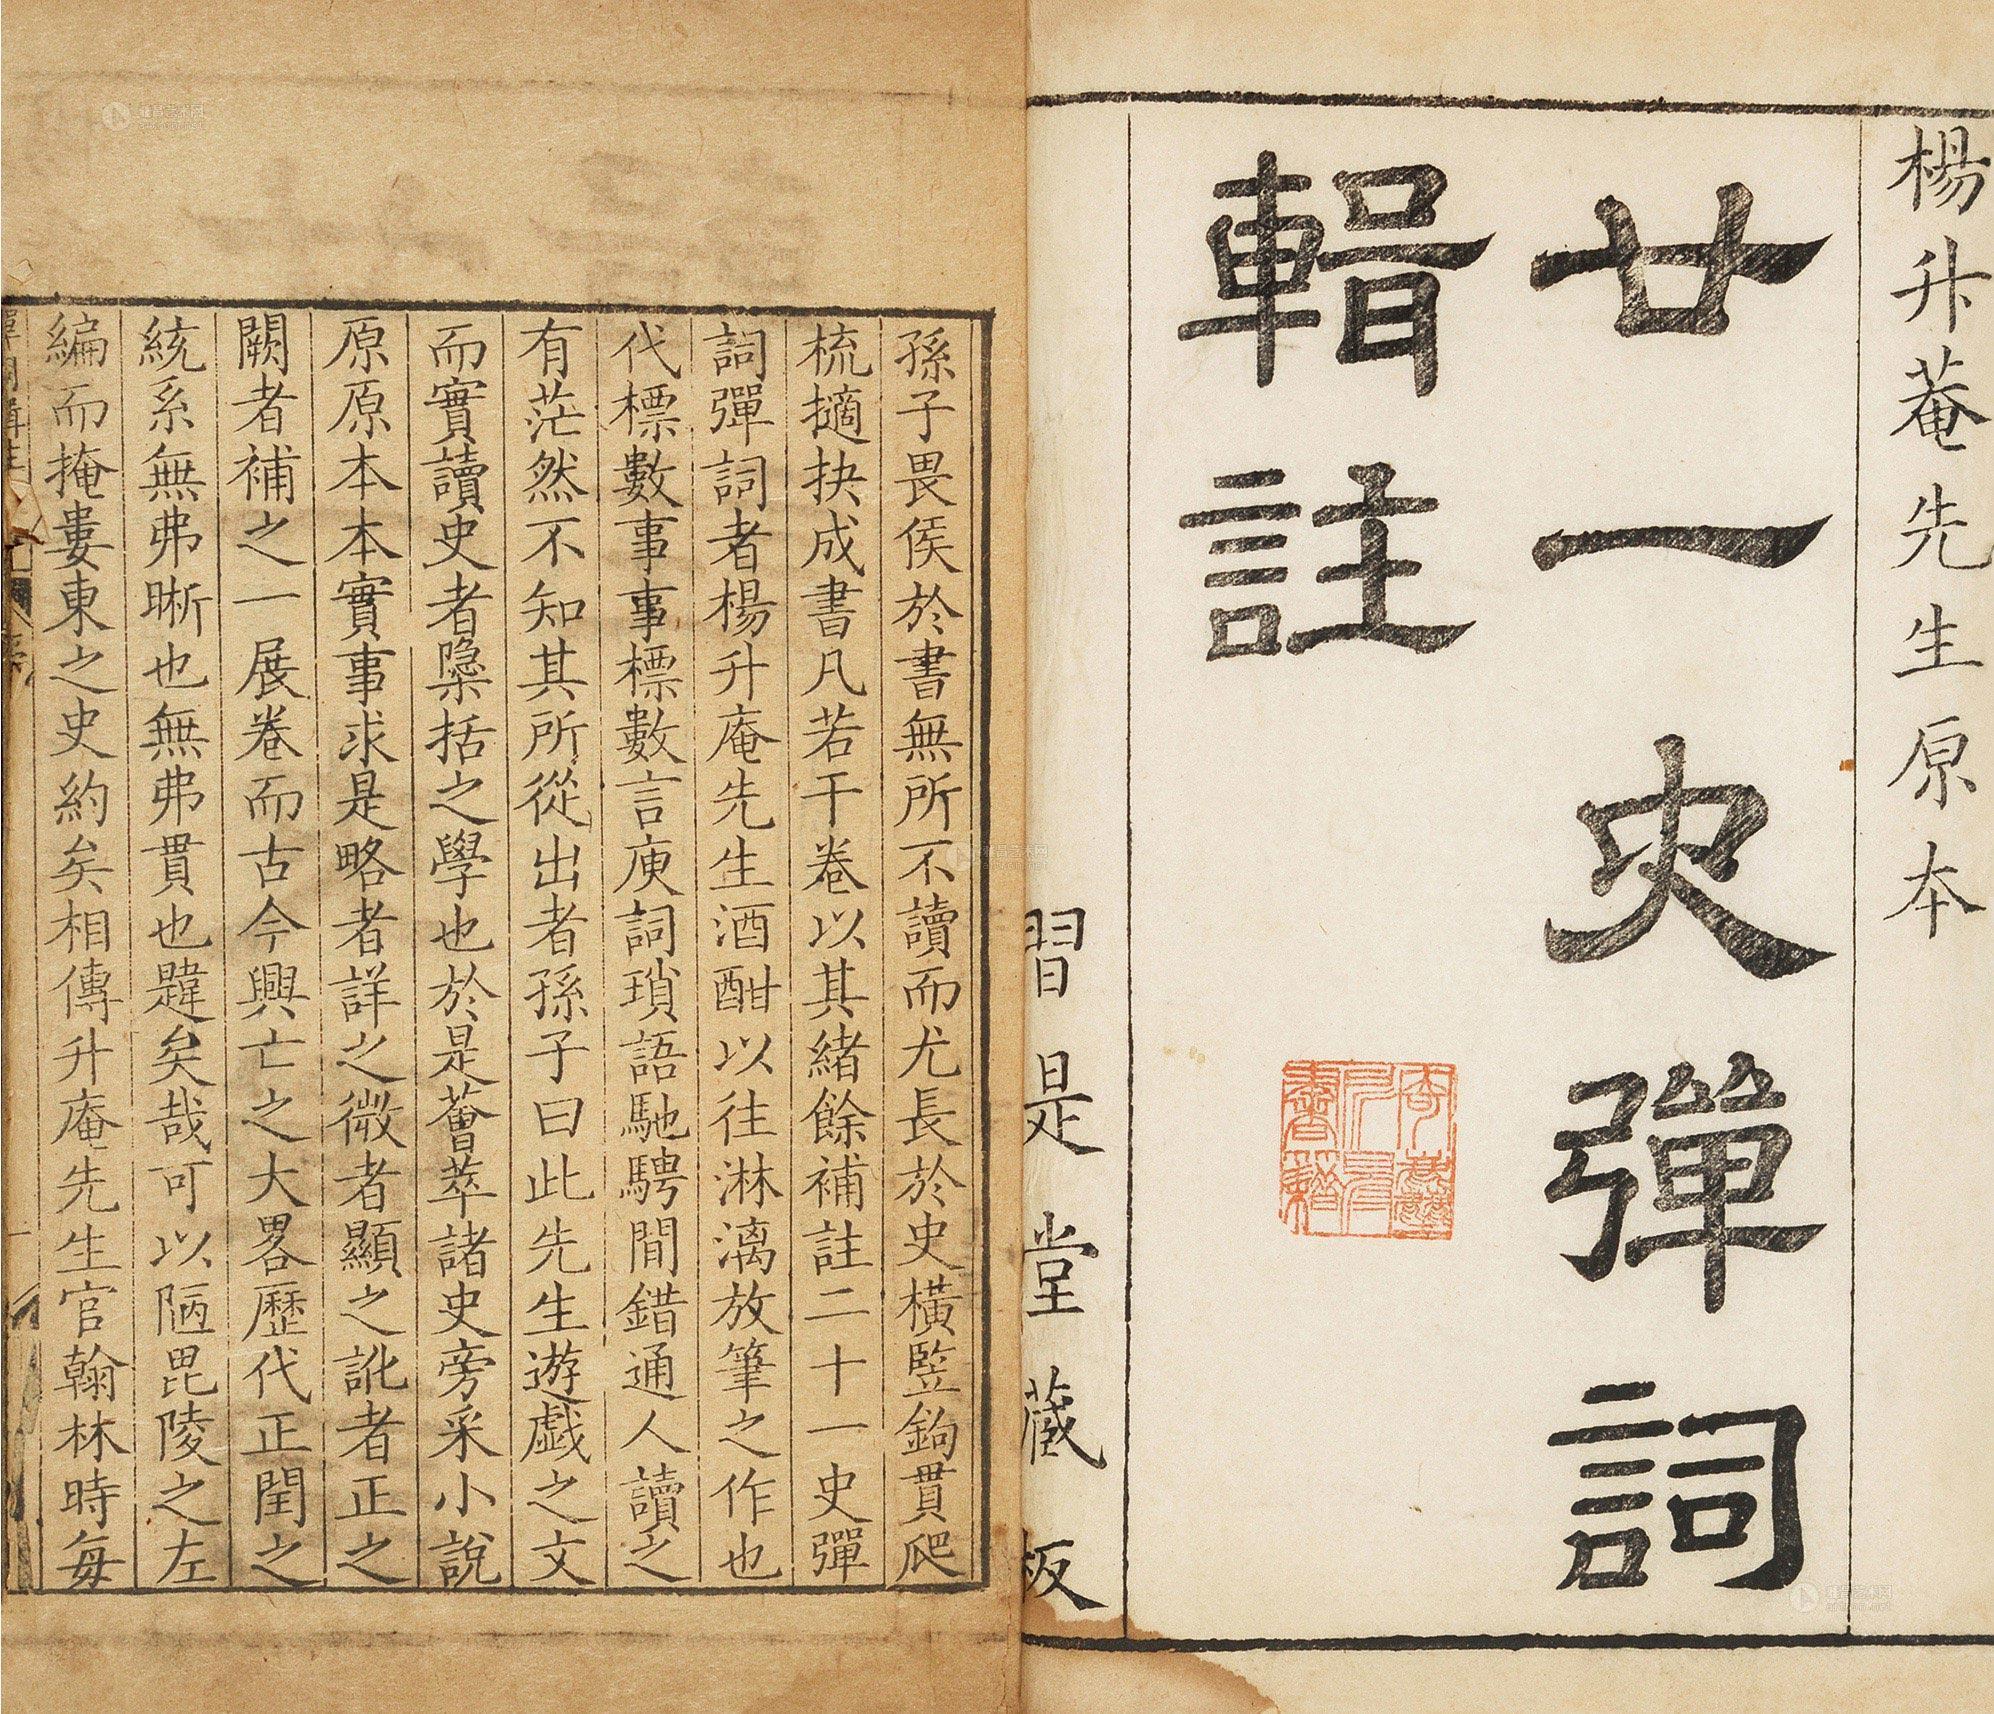 楊升菴先生原本
廿一史彈詞
輯註
習是堂藏板
孫子畏侯於書無所不讀而尤長於史橫豎鉤貫爬
梳擿抉成書凡若干卷以其緒餘補註二十一史彈
詞彈詞者楊升庵先生酒酣以往淋漓放筆之作也
代標數事事標數言庾詞瑣語馳騁間錯通人讀之
有茫然不知其所從出者孫子曰此先生遊戲之文
而實讀史者檃括之學也於是薈萃諸史旁采小說
原原本本實事求是略者詳之微者顯之訛者正之
闕者補之一展卷而古今興亡之大畧歷代正閏之
統系無弗晰也無弗貫也韙矣哉可以陋毘陵之左
編而掩婁東之史約矣相傳升庵先生官翰林時每